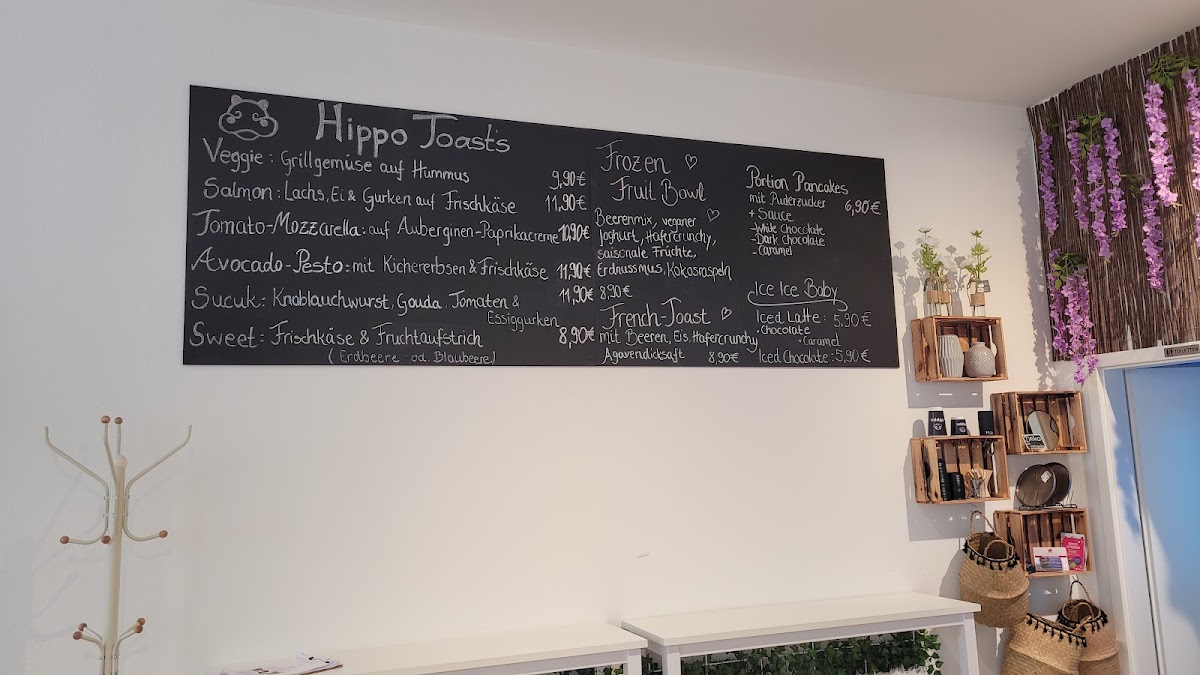 Hippo Toast's
Veggie: Grillgemüse auf Hummus 9,90€
Salmon: Lachs, Ei & Gurken auf Frischkäse 11,90€
Tomato-Mozzarella: auf Auberginen-Paprikacreme 10,90€
Avocado-Pesto: mit Kichererbsen & Frischkäse 11,90€
Sucuk: Knoblauchwurst, Gouda, Tomaten & 11,90€
Essiggurken
Sweet: Frischkäse & Fruchtaufstrich 8,90€
(Erdbeere od. Blaubeere)
Frozen
Fruit Bowl
Beerenmix, veganer
Joghurt, Hafercrunchy,
saisonale Früchte,
Erdnussmus, Kokosraspeln
8,90€
French-Toast
mit Beeren, Eis, Hafercrunchy
Agavendicksaft 8,90€
Portion Pancakes
mit Puderzucker 6,90€
+ Sauce
-White Chocolate
-Dark Chocolate
-Caramel
Ice Ice Baby
Iced Latte: 5,90€
•Chocolate
•Caramel
Iced Chocolate: 5,90€
TOILETTEN